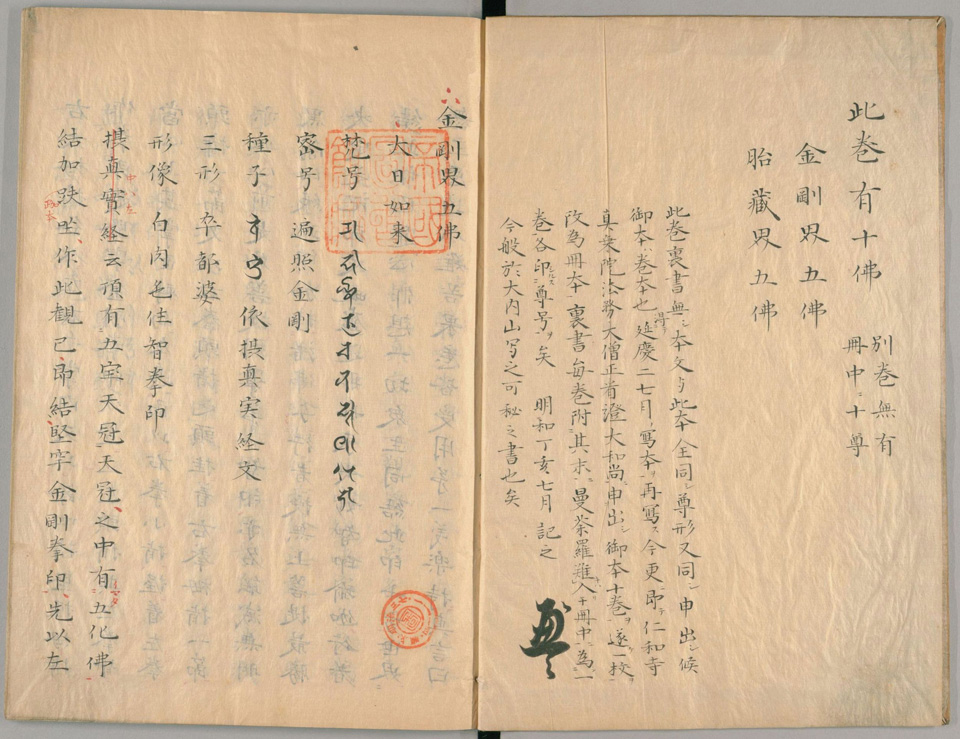 此巻有十佛
金剛界五佛
胎藏界五佛
別巻無有
冊中ニ十尊
此巻裏書無シ本文与此本全同シ尊形又同シ申出シ候
御本ハ巻本也延慶二七月ノ写本ヲ再写ス今更即チ仁和寺
真乗院法務大僧正有澄大和尚申出シ御本十巻ヲ遂一枚ヲ
改為冊本ニ裏書毎巻附其末ニ曼荼羅難入于冊中ニ為一
巻各印ニシルス尊号ヲ矣 明和丁亥七月 記之
今般於大内山写之可秘之書也矣
金剛界五佛
大日如来
梵号
密号 遍照金剛
種子 依摂真実経文
三形 卒都婆
形像 白肉色住智拳印
摂真實経云頂有五牢天冠天冠之中有五化佛
結加趺坐作此観已即結堅牢金剛拳印先以左